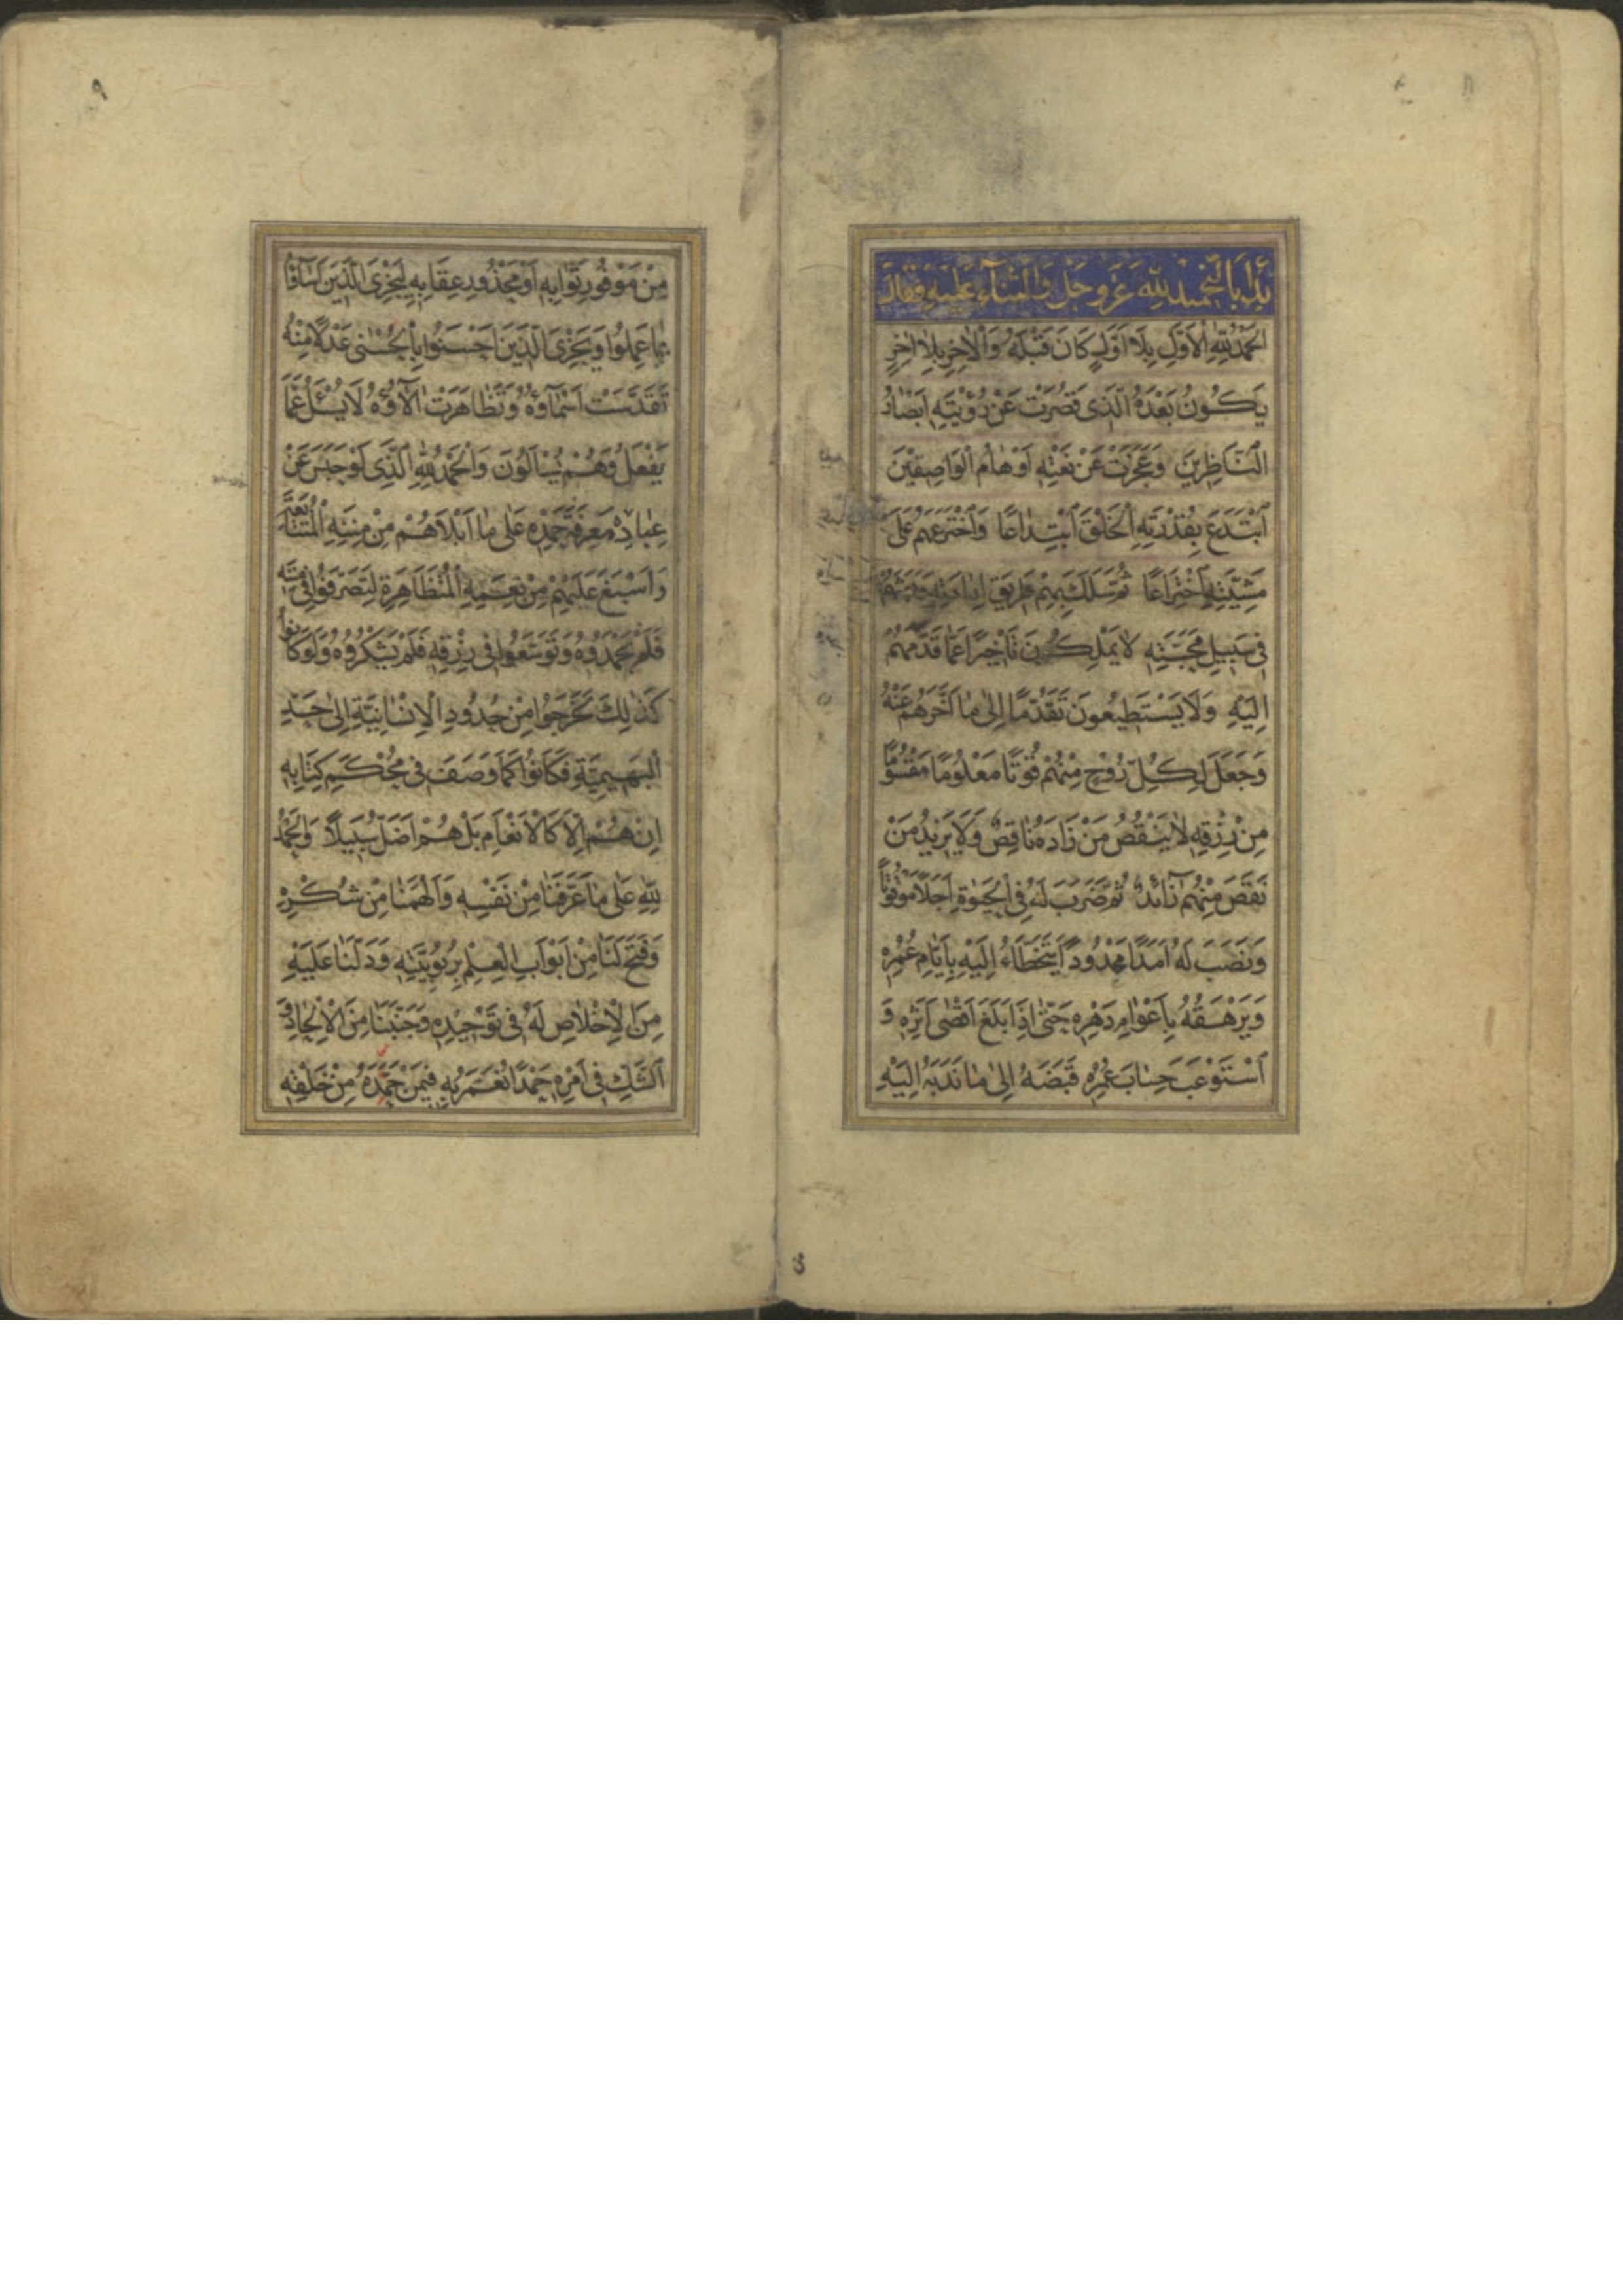 بَدَأَ بِالتَّحْمِيدِ لِلّٰهِ عَزَّ وَجَلَّ وَالثَّنَاۤءِ عَلَيْهِ فَقَالَ
اَلْحَمْدُ لِلّٰهِ الْاَوَّلِ بِلَا اَوَّلٍ كَانَ قَبْلَهُ وَالْاٰخِرِ بِلَا اٰخِرٍ
يَكُونُ بَعْدَهُ الَّذِى قَصُرَتْ عَنْ رُؤْيَتِهِ اَبْصَارُ
النَّاظِرِينَ وَعَجَزَتْ عَنْ نَعْتِهِ اَوْهَامُ الْوَاصِفِينَ
اِبْتَدَعَ بِقُدْرَتِهِ الْخَلْقَ ابْتِدَاعًا وَاخْتَرَعَهُمْ عَلَى
مَشِيَّتِهِ اخْتِرَاعًا ثُمَّ سَلَكَ بِهِمْ طَرِيقَ اِرَادَتِهِ وَبَعَثَهُمْ
فِى سَبِيلِ مَحَبَّتِهِ لَا يَمْلِكُونَ تَأْخِيرًا عَمَّا قَدَّمَهُمْ
اِلَيْهِ وَلَا يَسْتَطِيعُونَ تَقَدُّمًا اِلٰى مَا اَخَّرَهُمْ عَنْهُ
وَجَعَلَ لِكُلِّ رُوحٍ مِنْهُمْ قُوتًا مَعْلُومًا مَقْسُومًا
مِنْ رِزْقِهِ لَا يَنْقُصُ مَنْ زَادَهُ نَاقِصٌ وَلَا يَزِيدُ مَنْ
نَقَصَ مِنْهُمْ زَائِدٌ ثُمَّ ضَرَبَ لَهُ فِى الْحَيٰوةِ اَجَلًا مَوْقُوتًا
وَنَصَبَ لَهُ اَمَدًا مَحْدُودًا يَتَخَطَّاءُ اِلَيْهِ بِاَيَّامِ عُمُرِهِ
وَيَرْهَقُهُ بِاَعْوَامِ دَهْرِهِ حَتّٰى اِذَا بَلَغَ اَقْصٰى اَثَرِهِ وَ
اسْتَوْعَبَ حِسَابَ عُمُرِهِ قَبَضَهُ اِلٰى مَا نَدَبَهُ اِلَيْهِ
٩
مِنْ مَوْفُورِ ثَوَابِهِ اَوْ مَحْذُورِ عِقَابِهِ لِيَجْزِىَ الَّذِينَ اَسَاۤؤُا
بِمَا عَمِلُوا وَيَجْزِىَ الَّذِينَ اَحْسَنُوا بِالْحُسْنٰى عَدْلًا مِنْهُ
تَقَدَّسَتْ اَسْمَاۤؤُهُ وَتَظَاهَرَتْ اٰلَاۤؤُهُ لَا يُسْئَلُ عَمَّا
يَفْعَلُ وَهُمْ يُسْأَلُونَ وَالْحَمْدُ لِلّٰهِ الَّذِى لَوْ حَبَسَ عَنْ
عِبَادِهِ مَعْرِفَةَ حَمْدِهِ عَلٰى مَا اَبْلَاهُمْ مِنْ مِنَنِهِ الْمُتَتَابِعَةِ
وَاَسْبَغَ عَلَيْهِمْ مِنْ نِعَمِهِ الْمُتَظَاهِرَةِ لَتَصَرَّفُوا فِى مِنَنِهِ
فَلَمْ يَحْمَدُوهُ وَتَوَسَّعُوا فِى رِزْقِهِ فَلَمْ يَشْكُرُوهُ وَلَوْ كَانُوا
كَذٰلِكَ لَخَرَجُوا مِنْ حُدُودِ الْاِنْسَانِيَّةِ اِلٰى حَدِّ
الْبَهِيمِيَّةِ فَكَانُوا كَمَا وَصَفَ فِى مُحْكَمِ كِتَابِهِ
اِنْ هُمْ اِلَّا كَالْاَنْعَامِ بَلْ هُمْ اَضَلُّ سَبِيلًا وَالْحَمْدُ
لِلّٰهِ عَلٰى مَا عَرَّفَنَا مِنْ نَفْسِهِ وَاَلْهَمَنَا مِنْ شُكْرِهِ
وَفَتَحَ لَنَا مِنْ اَبْوَابِ الْعِلْمِ بِرُبُوبِيَّتِهِ وَدَلَّنَا عَلَيْهِ
مِنَ الْاِخْلَاصِ لَهُ فِى تَوْحِيدِهِ وَجَنَّبَنَا مِنَ الْاِلْحَادِ وَ
الشَّكِّ فِى اَمْرِهِ حَمْدًا نُعَمَّرُ بِهِ فِيمَنْ حَمِدَهُ مِنْ خَلْقِهِ